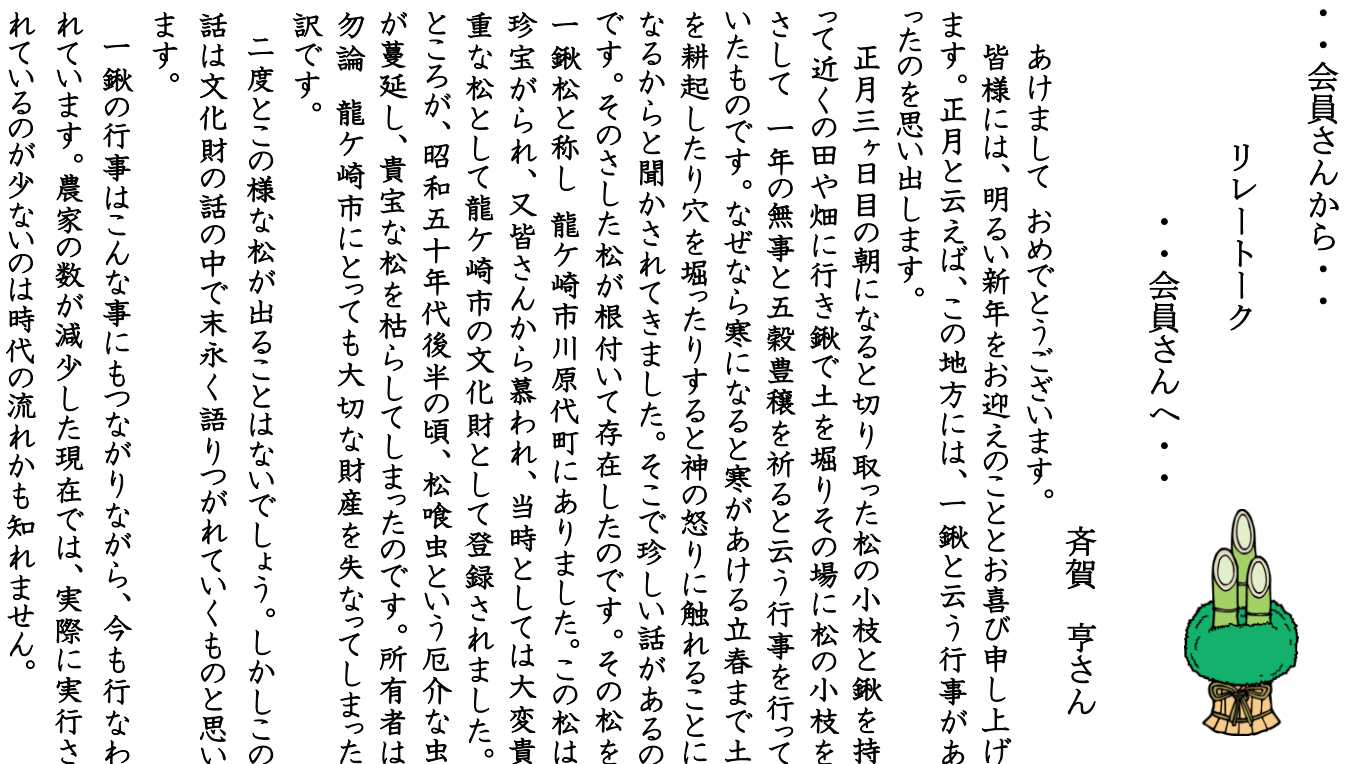 ・・会員さんから・・
リレートーク
・・会員さんへ・・
斉賀　亨さん
あけまして　おめでとうございます。
皆様には、明るい新年をお迎えのこととお喜び申し上げ
ます。正月と云えば、この地方には、一鍬と云う行事があ
ったのを思い出します。
正月三ヶ日目の朝になると切り取った松の小枝と鍬を持
って近くの田や畑に行き鍬で土を堀りその場に松の小枝を
さして　一年の無事と五穀豊穣を祈ると云う行事を行って
いたものです。なぜなら寒になると寒があける立春まで土
を耕起したり穴を堀ったりすると神の怒りに触れることに
なるからと聞かされてきました。そこで珍しい話があるの
です。そのさした松が根付いて存在したのです。その松を
一鍬松と称し　龍ケ崎市川原代町にありました。この松は
珍宝がられ、又皆さんから慕われ、当時としては大変貴
重な松として龍ケ崎市の文化財として登録されました。
ところが、昭和五十年代後半の頃、松喰虫という厄介な虫
が蔓延し、貴宝な松を枯らしてしまったのです。所有者は
勿論　龍ケ崎市にとっても大切な財産を失なってしまった
訳です。
二度とこの様な松が出ることはないでしょう。しかしこの
話は文化財の話の中で末永く語りつがれていくものと思い
ます。
一鍬の行事はこんな事にもつながりながら、今も行なわ
れています。農家の数が減少した現在では、実際に実行さ
れているのが少ないのは時代の流れかも知れません。